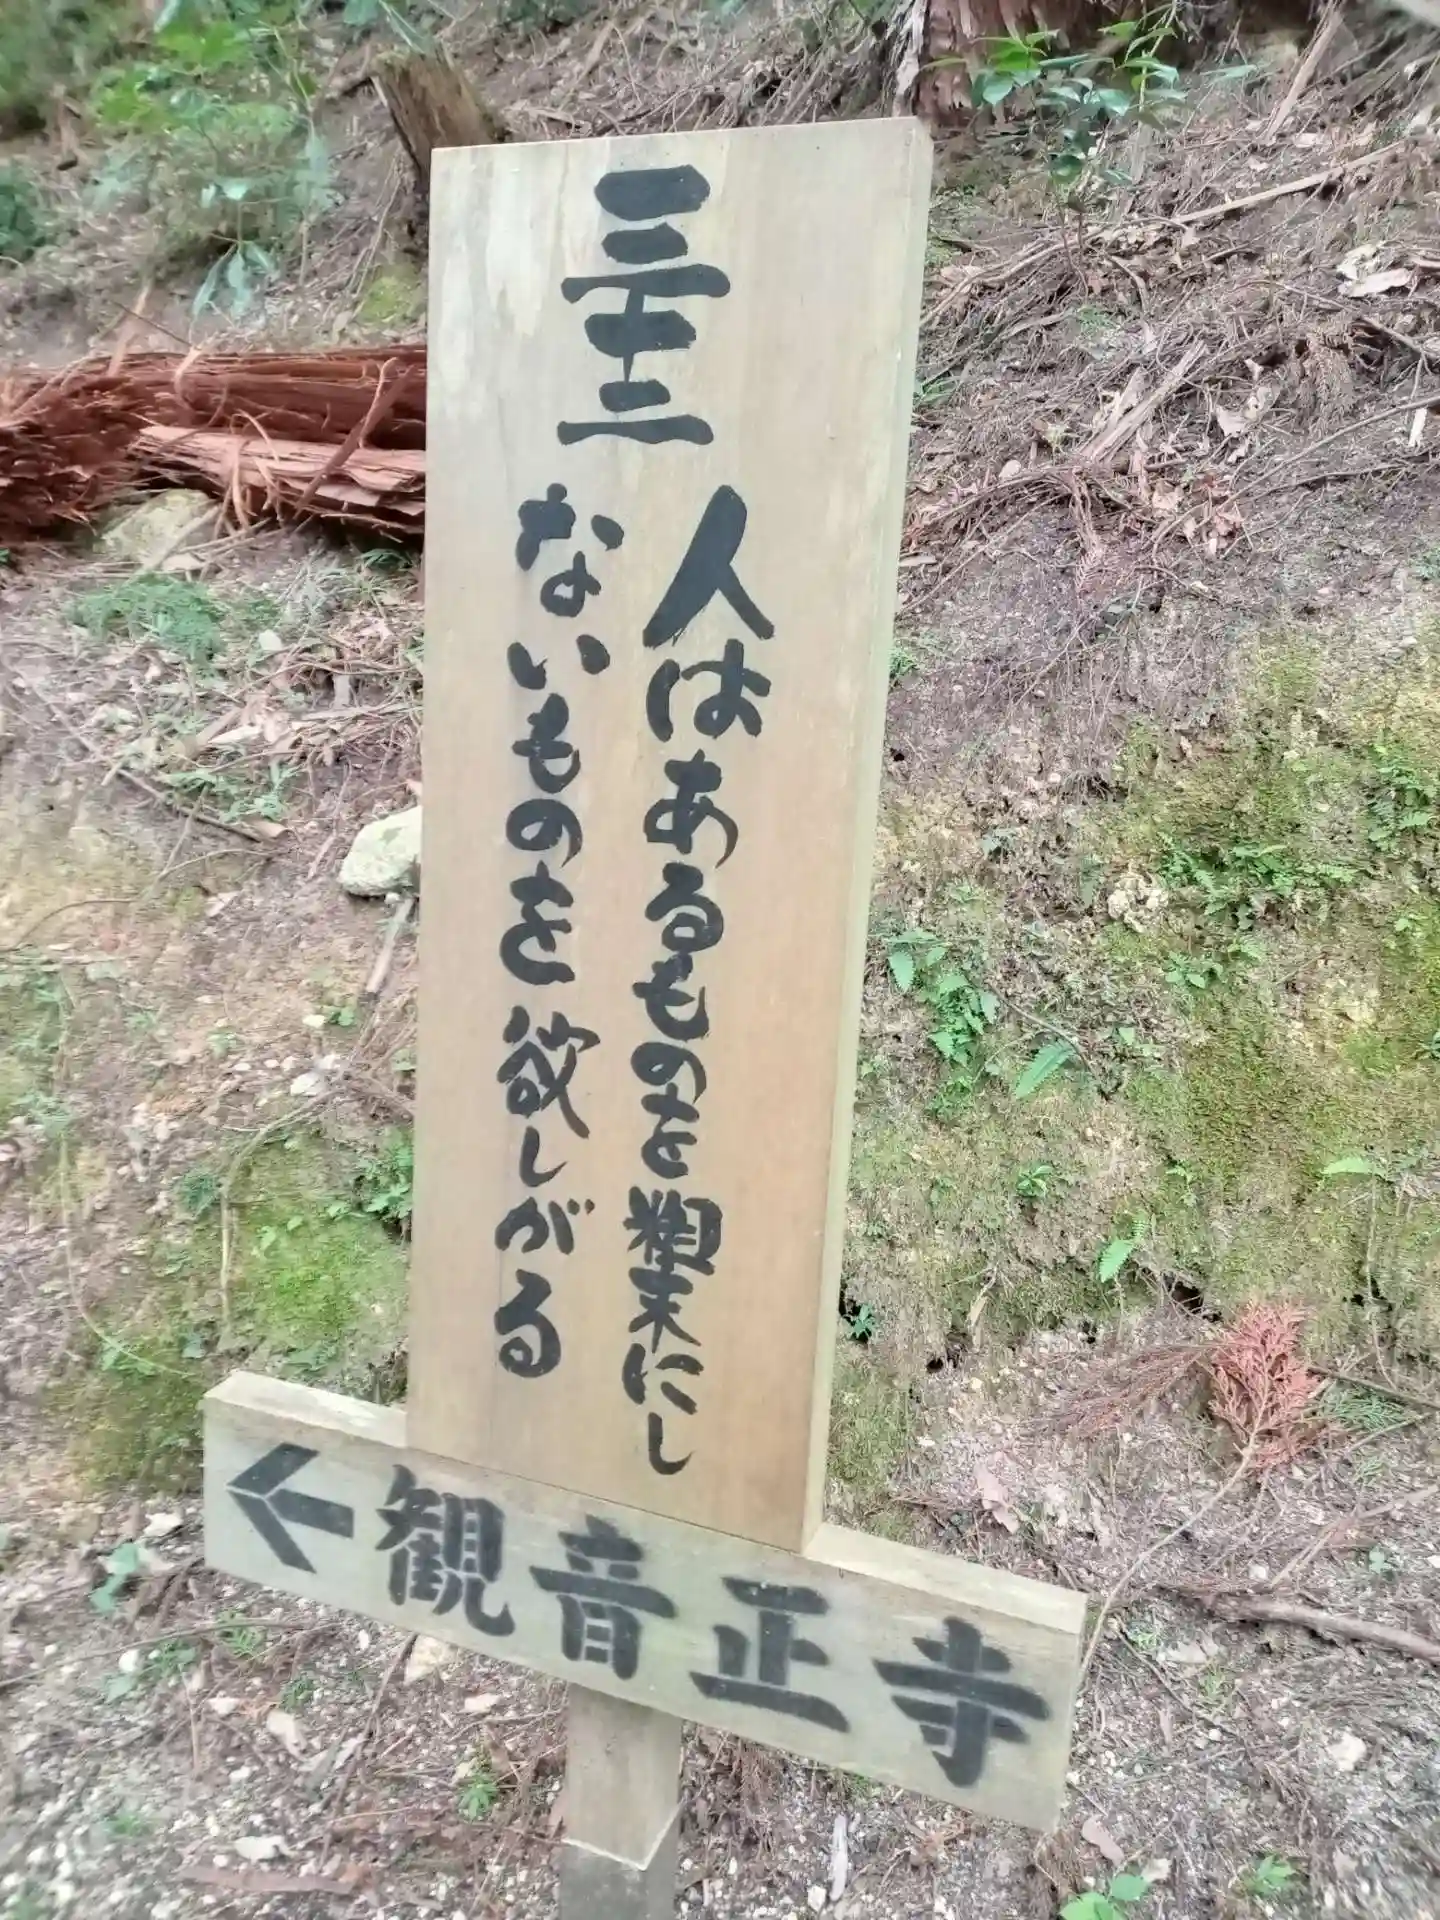 三十二
人はあるものを粗末にし
ないものを欲しがる
←観音正寺